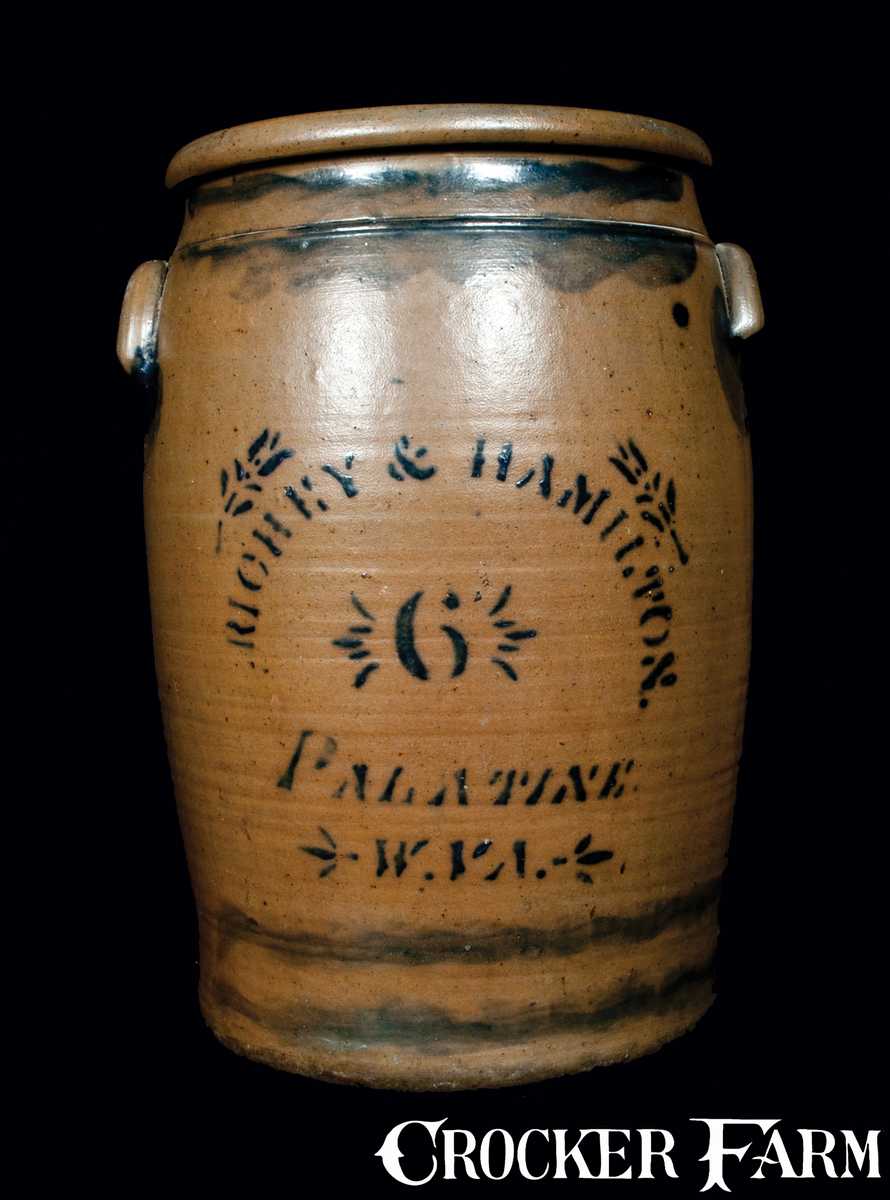 RICHEY & HAMILTON.
6
PALATINE
W. VA.
CROCKER FARM